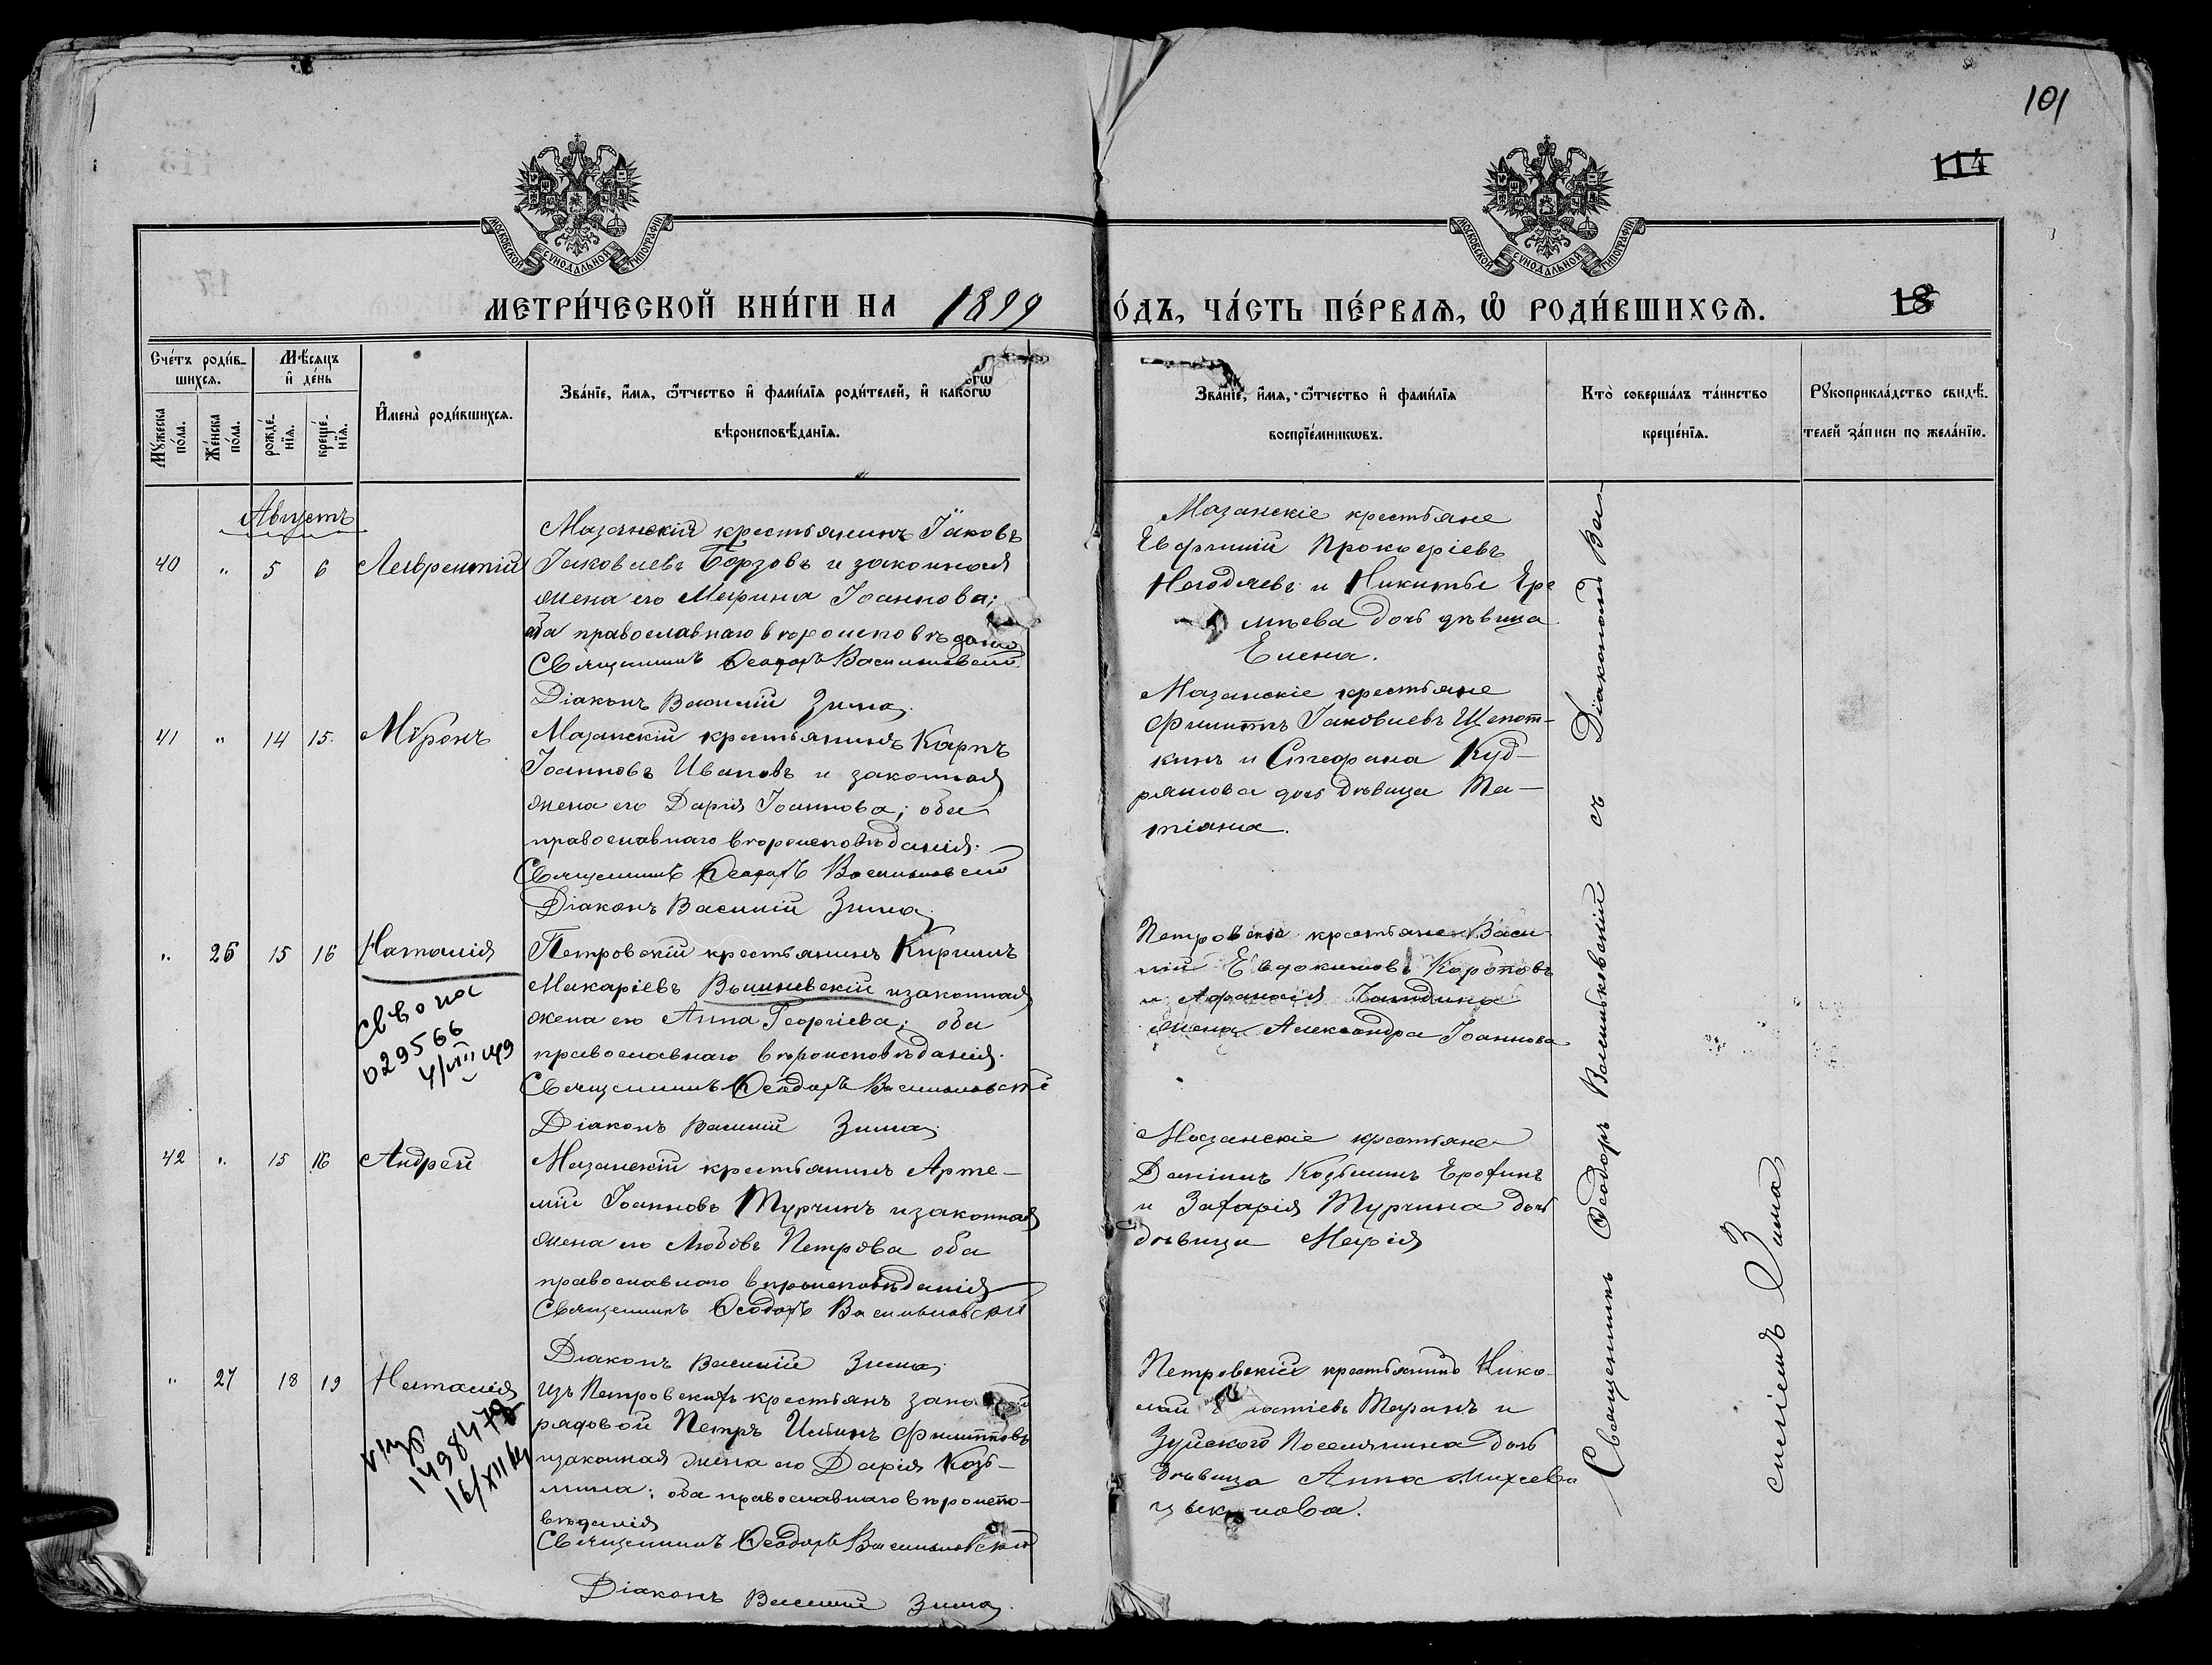 101
114
МОСКОВСКОЙ СѴНОДАЛЬНОЙ ТИПОГРАФІИ
МОСКОВСКОЙ СѴНОДАЛЬНОЙ ТИПОГРАФІИ
МЕТРИ́ЧЕСКОЙ КНИ́ГИ НА 1899
О́ДЪ, ЧА́СТЬ ПЕ́РВАѦ, Ѡ҆ РОДИ́ВШИХСѦ.
18
Сче́тъ роди́в-
шихсѧ.
Мꙋ́жеска по́ла.
Же́нска по́ла.
Мѣ́сѧцъ
и҆ де́нь
рожде́-
нїѧ.
креще́-
нїѧ.
И҆мена̀ роди́вшихсѧ.
Зва́нїе, и҆́мѧ, ѻ҆́тчество и҆ фамі́лїѧ роди́телей, и҆ како́гѡ
вѣроисповѣ́данїѧ.
Зва́нїе, и҆́мѧ, ѻ҆́тчество и҆ фамі́лїѧ
воспрїе́мникѡвъ.
Кто̀ соверша́лъ та́инство
креще́нїѧ.
Рꙋкоприкла́дство свидѣ́-
телей за́писи по жела́нїю.
Августъ
40 " 5 6 Лаврентій
Мазанскій крестьянинъ Іаковъ
Іаковлевъ Борзовъ и законная
жена его Марина Іоаннова;
оба православнаго вѣроисповѣданія
Священникъ Ѳеодоръ Васильковскій
Діаконъ Василій Зима.
Мазанскіе крестьяне
Евфимій Прокофіевъ
Негодяевъ и Никиты Ере
мѣева дочь дѣвица
Елена.
41 " 14 15. Мѵронъ
Мазанскій крестьянинъ Карпъ
Іоанновъ Ивановъ и законная
жена его Дарія Іоаннова; оба
православнаго вѣроисповѣданія.
Священникъ Ѳеодоръ Васильковскій
Діаконъ Василій Зима.
Мазанскіе крестьяне
Филиппъ Іаковлевъ Щепот-
кинъ и Стефана Куд-
ряшова дочь дѣвица Та-
тіана.
" 26 15 16 Наталія
Св во на
029566
4/VIII 49
Петровскій крестьянинъ Кириллъ
Макаріевъ Вышневскій и законная
жена его Анна Георгіева; оба
православнаго вѣроисповѣданія.
Священникъ Ѳеодоръ Васильковскій
Діаконъ Василій Зима.
Петровскіе крестьяне Васи
лій Евдокимовъ Коротовъ
и Афанасія
жена Александра Іоаннова
42 " 15 16 Андрей
Мазанскій крестьянинъ Арте-
мій Іоанновъ Турчинъ и законная
жена его Любовь Петрова оба
православнаго вѣроисповѣданія
Священникъ Ѳеодоръ Васильковскій
Діаконъ Василій Зима.
Мазанскіе крестьяне
Даніилъ Козьминъ Ерохинъ
и Захарія Турчина дочь
дѣвица Марія
" 27 18 19 Наталія
149847
16/XII
Изъ Петровскихъ крестьянъ
рядовой Петръ Филипповъ
и законная жена его Дарія Козь-
мина; оба православнаго вѣроиспо-
вѣданія
Священникъ Ѳеодоръ Васильковскій
Діаконъ Василій Зима.
Петровскій крестьянинъ Нико
лай Таранъ и
Зуйского Поселянина дочь
дѣвица Анна Михеева
Священникъ Ѳеодоръ Васильковскій съ Діакономъ Ва-
силіемъ Зима